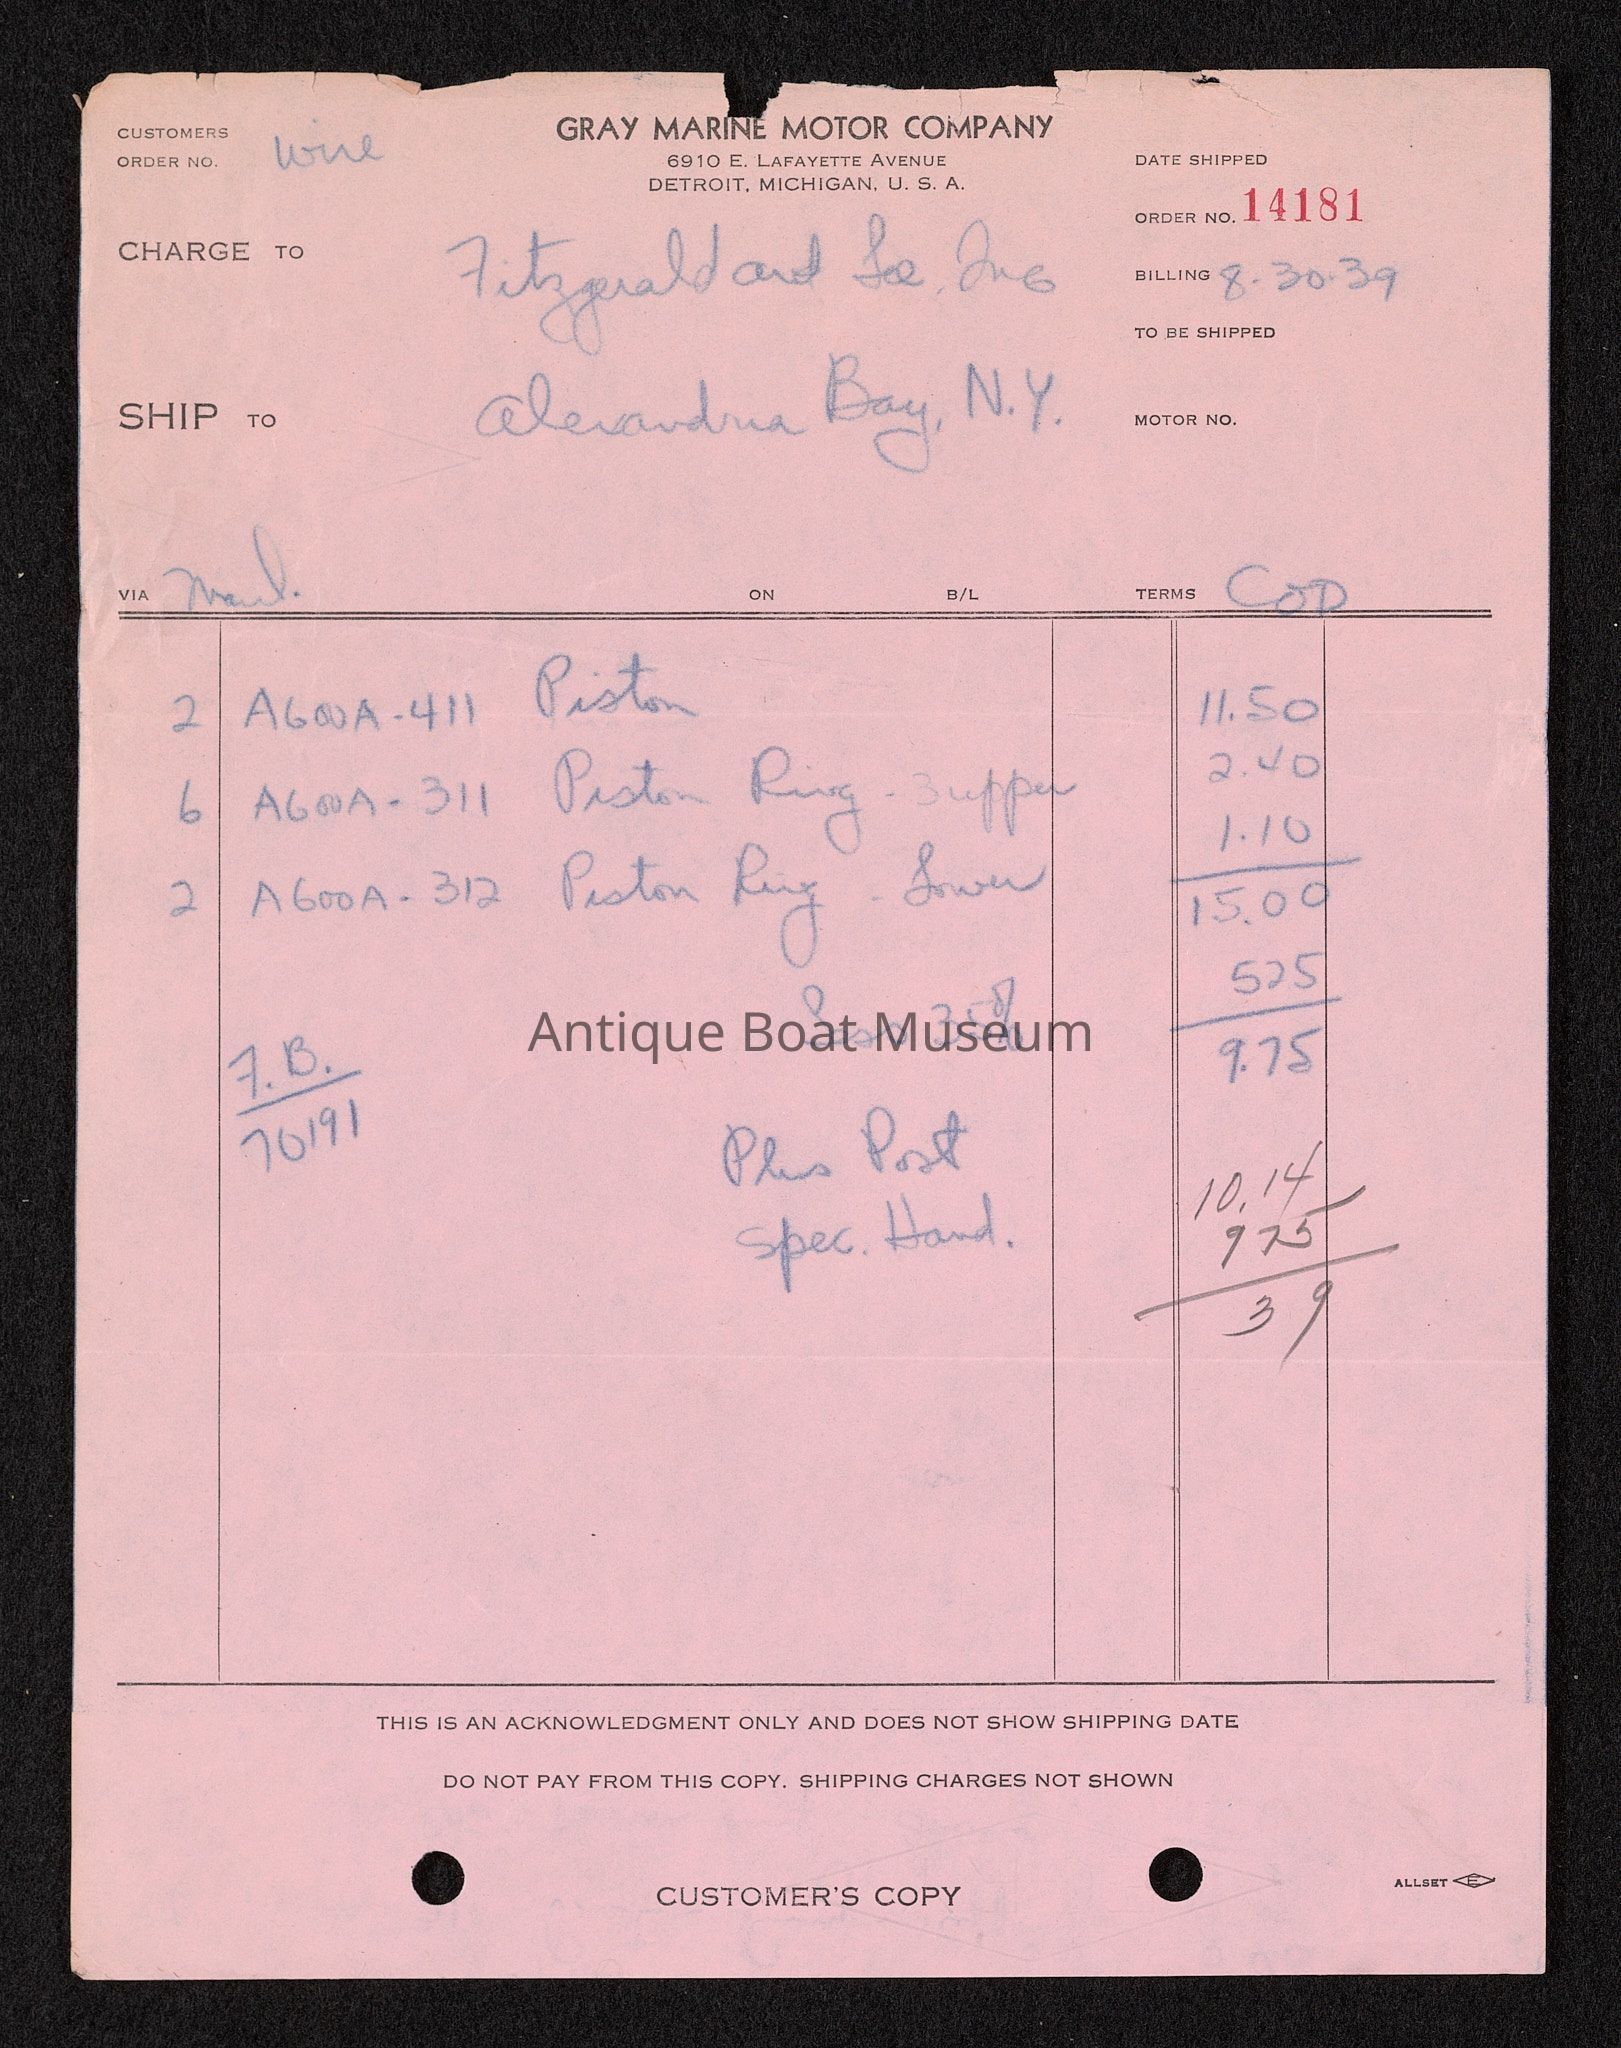 CUSTOMERS
ORDER NO. Wire
GRAY MARINE MOTOR COMPANY
6910 E. LAFAYETTE AVENUE
DETROIT, MICHIGAN, U. S. A.
DATE SHIPPED
ORDER NO. 14181
CHARGE TO Fitzgerald and Lee, Inc
BILLING 8-30-39
TO BE SHIPPED
SHIP TO Alexandria Bay, N.Y.
MOTOR NO.
VIA Mail. ON B/L TERMS COD
2 A600A-411 Piston 11.50
6 A600A-311 Piston Ring - 3 upper 2.40
2 A600A-312 Piston Ring - Lower 1.10
15.00
Less 35% 525
9.75
F.B.
70191
Plus Post
spec. Hand.
10.14
975
39
Antique Boat Museum
THIS IS AN ACKNOWLEDGMENT ONLY AND DOES NOT SHOW SHIPPING DATE
DO NOT PAY FROM THIS COPY. SHIPPING CHARGES NOT SHOWN
CUSTOMER'S COPY
ALLSET E